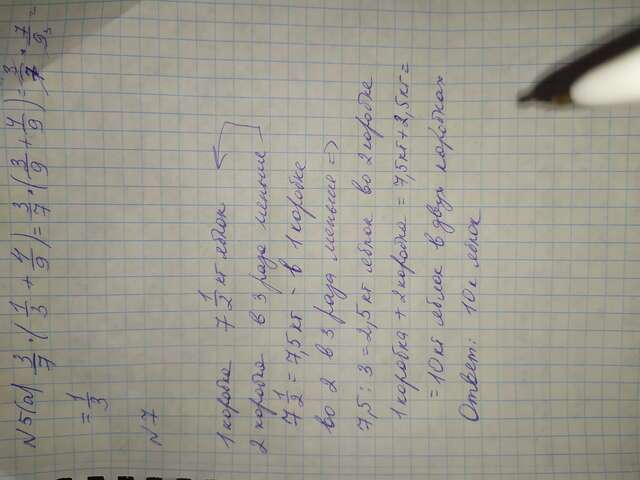 N5(a) 3/7 · (1/3 + 4/9) = 3/7 · (3/9 + 4/9) = 3/7 · 7/9 =
= 1/3
N7
1 коробка 7 1/2 кг яблок
2 коробка в 3 раза меньше
7 1/2 = 7,5 кг - в 1 коробке
во 2 в 3 раза меньше =>
7,5 : 3 = 2,5 кг яблок во 2 коробке
1 коробка + 2 коробка = 7,5 кг + 2,5 кг =
= 10 кг яблок в двух коробках
Ответ: 10 к яблок